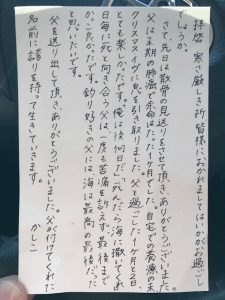 拝啓 寒さ厳しき折 皆様におかれましてはいかがお過ごし
でしょうか。
さて、先日は散骨の見送りをさせて頂き、ありがとうございました。
父は末期の肺癌で余命はたった1ヶ月でした。自宅での療養の末
クリスマスイヴに息を引き取りました。父と過ごした1ヶ月と2日
とても楽しかったです。「俺は後何日だ」「死んだら海に撒いてくれ」
日毎に死と向き合う父は、一度も苦痛を訴えず、最後まで
かっこ良かったです。釣り好きの父には海は最高の最後だった
と思いたいです。
父を送り出して頂き、ありがとうございました。父が付けてくれた
名前に誇りを持って生きていきます。
かしこ